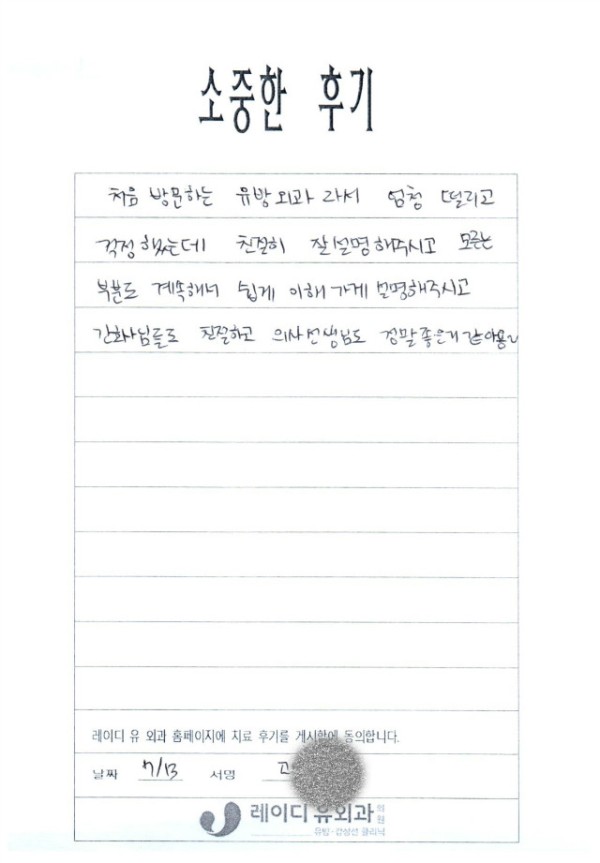 소중한 후기
처음 방문하는 유방외과 라서 엄청 떨리고
걱정했는데 친절히 잘 설명해주시고 모르는
부분도 계속해서 쉽게 이해가게 설명해주시고
간호사님들도 친절하고 의사선생님도 정말좋은거같아용~
레이디 유 외과 홈페이지에 치료 후기를 게시함에 동의합니다.
날짜 7/13 서명 고
레이디 유외과 의원
유방·갑상선 클리닉